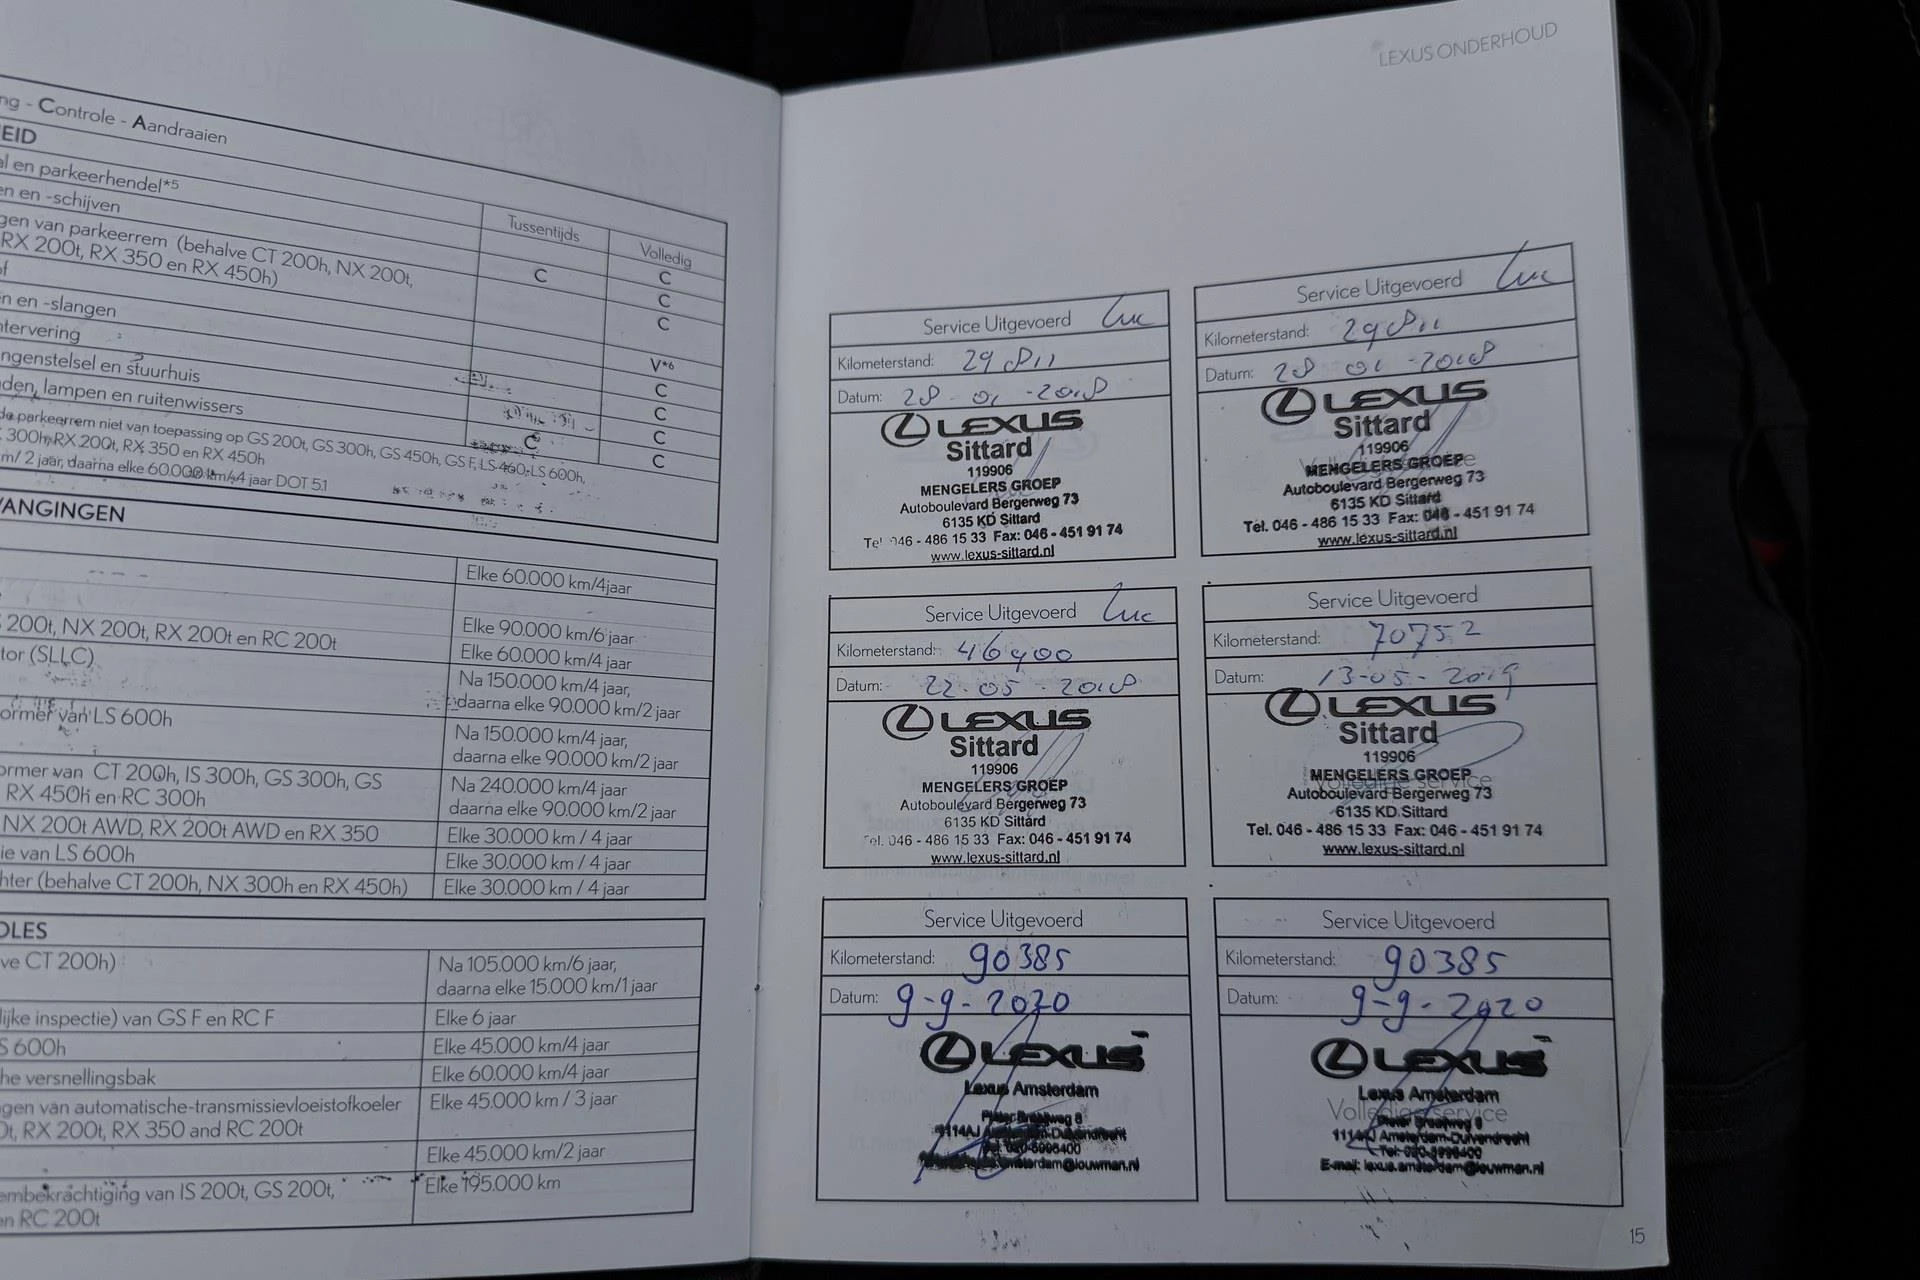 ng - Controle - Aandraaien
EID
Tussentijds
Volledig
el en parkeerhendel*5
C
en en -schijven
C
C
gen van parkeerrem (behalve CT 200h, NX 200t,
RX 200t, RX 350 en RX 450h)
C
of
n en -slangen
V*6
ntervering
C
ngenstelsel en stuurhuis
C
den, lampen en ruitenwissers
C
C
C
de parkeerrem niet van toepassing op GS 200t, GS 300h, GS 450h, GS F, LS 460, LS 600h,
300h, RX 200t, RX 350 en RX 450h
m/ 2 jaar, daarna elke 60.000 km/4 jaar DOT 5.1
VANGINGEN
Elke 60.000 km/4 jaar
Elke 90.000 km/6 jaar
200t, NX 200t, RX 200t en RC 200t
Elke 60.000 km/4 jaar
tor (SLLC)
Na 150.000 km/4 jaar,
daarna elke 90.000 km/2 jaar
ormer van LS 600h
Na 150.000 km/4 jaar,
daarna elke 90.000 km/2 jaar
ormer van CT 200h, IS 300h, GS 300h, GS
RX 450h en RC 300h
Na 240.000 km/4 jaar
daarna elke 90.000 km/2 jaar
NX 200t AWD, RX 200t AWD en RX 350
Elke 30.000 km / 4 jaar
ie van LS 600h
Elke 30.000 km / 4 jaar
hter (behalve CT 200h, NX 300h en RX 450h)
Elke 30.000 km / 4 jaar
OLES
ve CT 200h)
Na 105.000 km/6 jaar,
daarna elke 15.000 km/1 jaar
lijke inspectie) van GS F en RC F
Elke 6 jaar
S 600h
Elke 45.000 km/4 jaar
he versnellingsbak
Elke 60.000 km/4 jaar
ngen van automatische-transmissievloeistofkoeler
0t, RX 200t, RX 350 and RC 200t
Elke 45.000 km / 3 jaar
Elke 45.000 km/2 jaar
embekrachtiging van IS 200t, GS 200t,
en RC 200t
Elke 195.000 km
LEXUS ONDERHOUD
Service Uitgevoerd Luc
Kilometerstand: 29811
Datum: 28-01-2018
LEXUS
Sittard
119906
MENGELERS GROEP
Autoboulevard Bergerweg 73
6135 KD Sittard
Tel. 046 - 486 15 33 Fax: 046 - 451 91 74
www.lexus-sittard.nl
Service Uitgevoerd Luc
Kilometerstand: 29811
Datum: 28 01 -2018
LEXUS
Sittard
119906
Volledige service
MENGELERS GROEP
Autoboulevard Bergerweg 73
6135 KD Sittard
Tel. 046 - 486 15 33 Fax: 046 - 451 91 74
www.lexus-sittard.nl
Service Uitgevoerd Luc
Kilometerstand: 46900
Datum: 22-05-2018
LEXUS
Sittard
119906
MENGELERS GROEP
Autoboulevard Bergerweg 73
6135 KD Sittard
Tel. 046 - 486 15 33 Fax: 046 - 451 91 74
www.lexus-sittard.nl
Service Uitgevoerd
Kilometerstand: 70752
Datum: 13-05-2019
LEXUS
Sittard
119906
MENGELERS GROEP
Volledige service
Autoboulevard Bergerweg 73
6135 KD Sittard
Tel. 046 - 486 15 33 Fax: 046 - 451 91 74
www.lexus-sittard.nl
Service Uitgevoerd
Kilometerstand: 90385
Datum: 9-9-2020
LEXUS
Lexus Amsterdam
Pieter Braaijweg 8
1114AJ Amsterdam-Duivendrecht
Tel: 020-5996400
amsterdam@louwman.nl
Service Uitgevoerd
Kilometerstand: 90385
Datum: 9-9-2020
LEXUS
Lexus Amsterdam
Volledige service
Pieter Braaijweg 8
1114AJ Amsterdam-Duivendrecht
Tel: 020-5996400
E-mail: lexus.amsterdam@louwman.nl
15